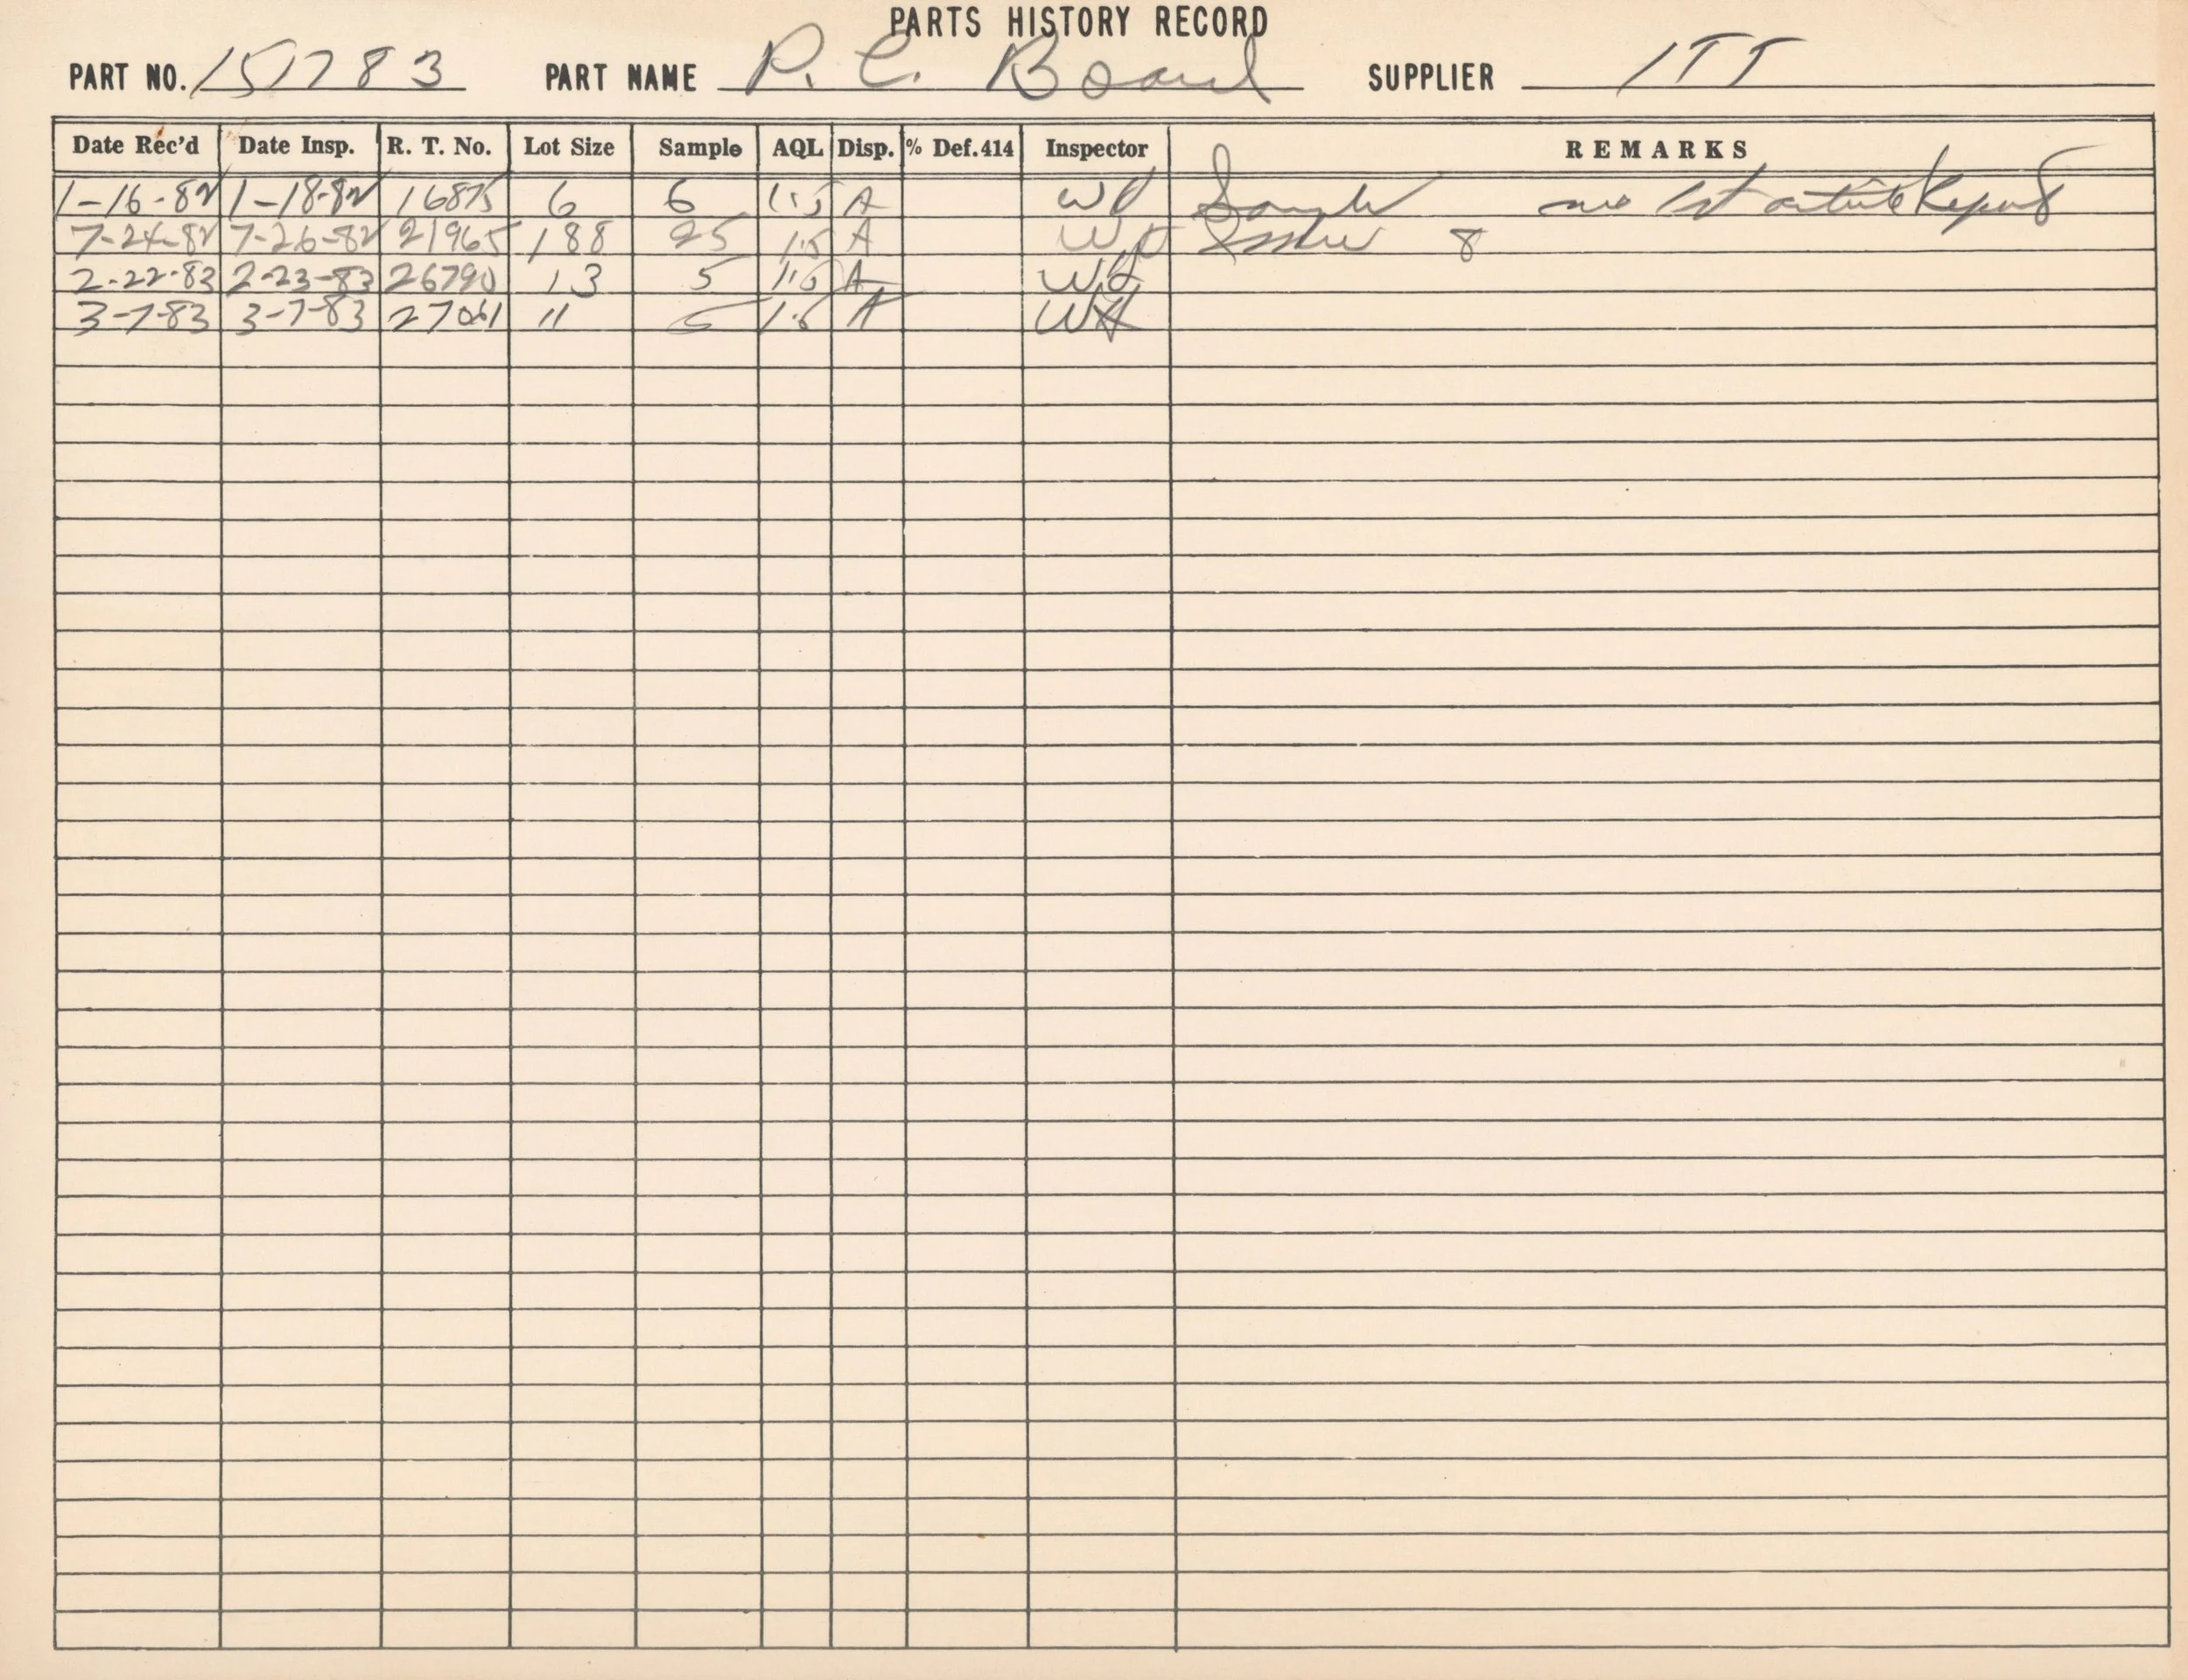 PARTS HISTORY RECORD
PART NO. 151783 PART NAME P. C. Board SUPPLIER ITT
Date Rec'd Date Insp. R. T. No. Lot Size Sample AQL Disp. % Def.414 Inspector REMARKS
1-16-82 1-18-82 16875 6 6 1.5 A Sample no 1st article Report
7-24-82 7-26-82 21965 188 25 1.5 A Issue 8
2-22-83 2-23-83 26790 13 5 1.5 A
3-7-83 3-7-83 27061 11 5 1.5 A